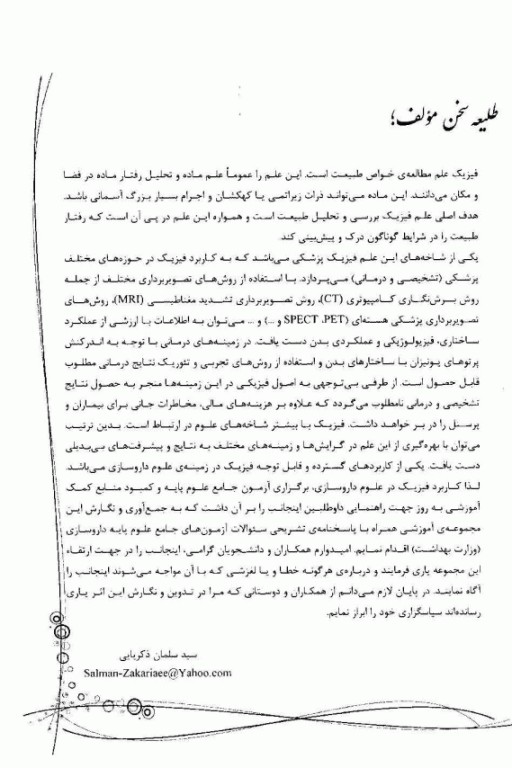 طلیعه سخن مؤلف؛
فیزیک علم مطالعه‌ی خواص طبیعت است. این علم را عموماً علم ماده و تحلیل رفتار ماده در فضا
و مکان می‌دانند. این ماده می‌تواند ذرات زیراتمی یا کهکشان و اجرام بسیار بزرگ آسمانی باشد.
هدف اصلی علم فیزیک بررسی و تحلیل طبیعت است و همواره این علم در پی آن است که رفتار
طبیعت را در شرایط گوناگون درک و پیش‌بینی کند.
یکی از شاخه‌های این علم فیزیک پزشکی می‌باشد که به کاربرد فیزیک در حوزه‌های مختلف
پزشکی (تشخیصی و درمانی) می‌پردازد. با استفاده از روش‌های تصویربرداری مختلف از جمله
روش برش‌نگاری کامپیوتری (CT)، روش تصویربرداری تشدید مغناطیسی (MRI)، روش‌های
تصویربرداری پزشکی هسته‌ای (SPECT ،PET و ...) و ... می‌توان به اطلاعات با ارزشی از عملکرد
ساختاری، فیزیولوژیکی و عملکردی بدن دست یافت. در زمینه‌های درمانی با توجه به اندرکنش
پرتوهای یونیزان با ساختارهای بدن و استفاده از روش‌های تجربی و تئوریک نتایج درمانی مطلوب
قابل حصول است. از طرفی بی‌توجهی به اصول فیزیکی در این زمینه‌ها منجر به حصول نتایج
تشخیصی و درمانی نامطلوب می‌گردد که علاوه بر هزینه‌های مالی، مخاطرات جانی برای بیماران و
پرسنل را در بر خواهد داشت. فیزیک با بیشتر شاخه‌های علوم در ارتباط است. بدین ترتیب
می‌توان با بهره‌گیری از این علم در گرایش‌ها و زمینه‌های مختلف به نتایج و پیشرفت‌های بی‌بدیلی
دست یافت. یکی از کاربردهای گسترده و قابل توجه فیزیک در زمینه‌ی علوم داروسازی می‌باشد.
لذا کاربرد فیزیک در علوم داروسازی، برگزاری آزمون جامع علوم پایه و کمبود منابع کمک
آموزشی به روز جهت راهنمایی داوطلبین اینجانب را بر آن داشت که به جمع‌آوری و نگارش این
مجموعه‌ی آموزشی همراه با پاسخنامه‌ی تشریحی سئوالات آزمون‌های جامع علوم پایه داروسازی
(وزارت بهداشت) اقدام نمایم. امیدوارم همکاران و دانشجویان گرامی، اینجانب را در جهت ارتقاء
این مجموعه یاری فرمایند و درباره‌ی هرگونه خطا و یا لغزشی که با آن مواجه می‌شوند اینجانب را
آگاه نمایند. در پایان لازم می‌دانم از همکاران و دوستانی که مرا در تدوین و نگارش این اثر یاری
رسانده‌اند سپاسگزاری خود را ابراز نمایم.
سید سلمان ذکریایی
Salman-Zakariaee@Yahoo.com